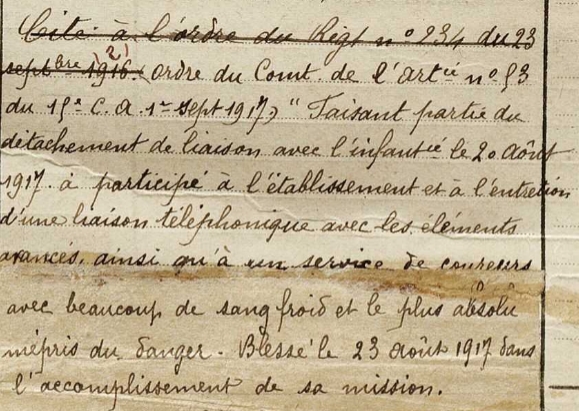 Cité à l'ordre du Régt n° 234 du 23
septbre 1916. 2) Ordre du Comt. de l'Artie n° 53
du 15e C. A 1er sept 1917, "Faisant partie du
détachement de liaison avec l'infantie le 20 Août
1917. à participé à l'établissement et à l'entretien
d'une liaison téléphonique avec les éléments
avancés, ainsi qu'à un service de coureurs
avec beaucoup de sang froid et le plus absolu
mépris du danger. Blessé le 23 août 1917 dans
l'accomplissement de sa mission.